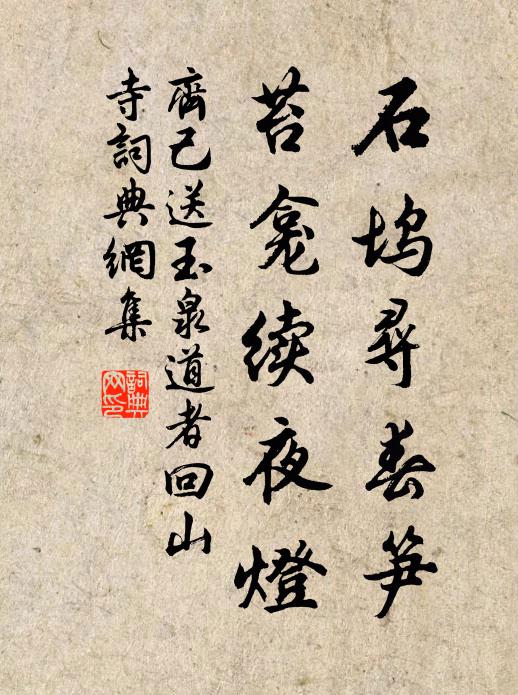 石坞寻春笋
苔龛续夜燈
齊己送玉泉道者回山
寺詞典網集
詞典
网印